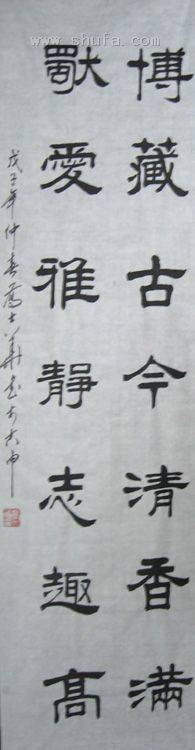 www.shufa.com
博藏古今清香滿
獨愛雅靜志趣高
戊子年仲春